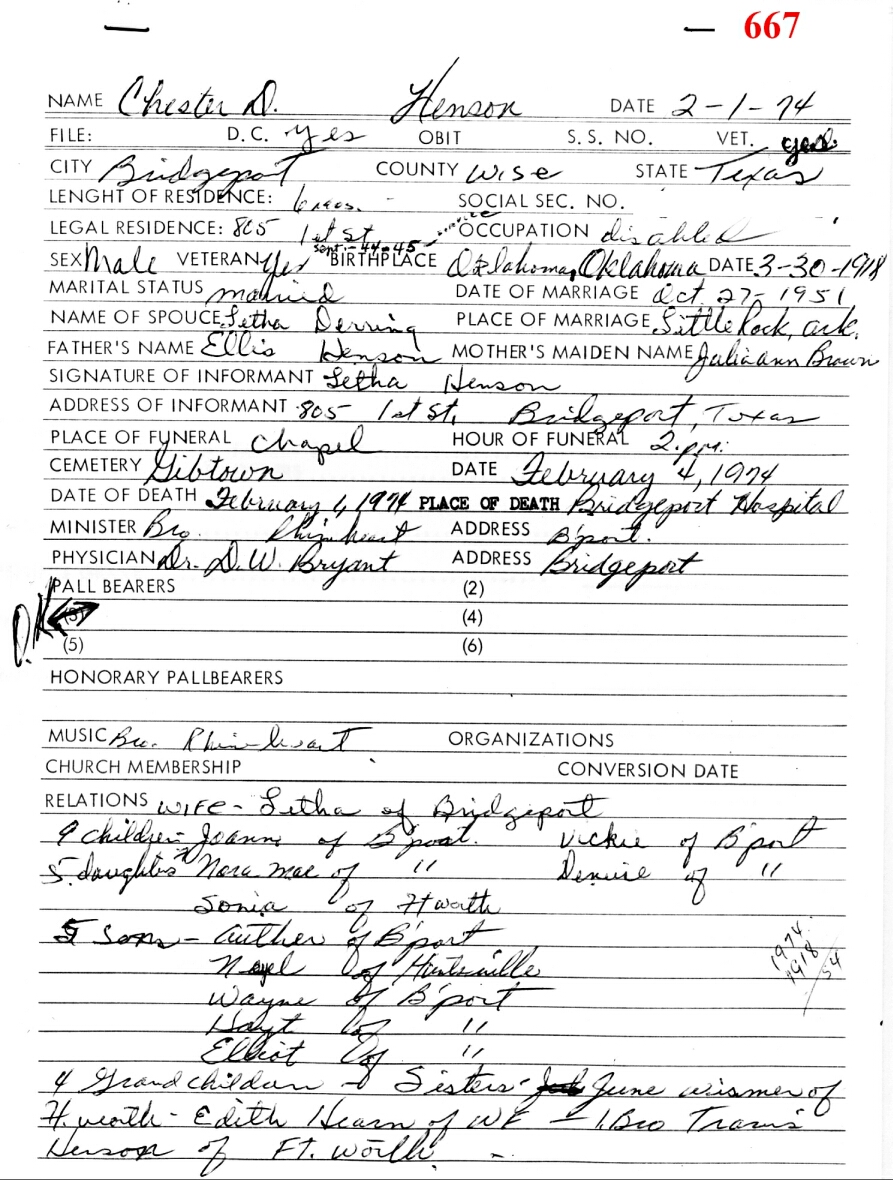 667
NAME Chester D. Henson DATE 2-1-74
FILE: D.C. yes OBIT S.S. NO. VET. yes
CITY Bridgeport COUNTY Wise STATE Texas
LENGHT OF RESIDENCE: 6 mos. - SOCIAL SEC. NO.
LEGAL RESIDENCE: 805 1st St. OCCUPATION disabled
SEX Male VETERAN yes 44-45 BIRTHPLACE Oklahoma, Oklahoma DATE 3-30-1918
MARITAL STATUS married DATE OF MARRIAGE Oct. 27-1951
NAME OF SPOUCE Letha Derring PLACE OF MARRIAGE Little Rock, Ark.
FATHER'S NAME Ellis Henson MOTHER'S MAIDEN NAME Julia ann Brown
SIGNATURE OF INFORMANT Letha Henson
ADDRESS OF INFORMANT 805 1st St, Bridgeport, Texas
PLACE OF FUNERAL Chapel HOUR OF FUNERAL 2.p.m.
CEMETERY Gibtown DATE February 4, 1974
DATE OF DEATH February 1, 1974 PLACE OF DEATH Bridgeport Hospital
MINISTER Bro. Rhineheart ADDRESS B'port.
PHYSICIAN Dr. D.W. Bryant ADDRESS Bridgeport
PALL BEARERS (2)
(3) (4)
(5) (6)
HONORARY PALLBEARERS
MUSIC Bro. Rhineheart ORGANIZATIONS
CHURCH MEMBERSHIP CONVERSION DATE
RELATIONS WIFE - Letha of Bridgeport
9 children - Joanne of B'port. Vickie of B'port
5 daughters Nora Mae of " Denise of "
Sonia of Ft Worth
5 Sons - Auther of B'port
Noyel of Huntsville
1974
1918
54
Wayne of B'port
Hoyt of "
Elliot of "
4 Grandchildren - Sisters - June Wismer of
Ft. Worth - Edith Hearn of WF - 1. Bro Travis
Henson of FT. Worth. -